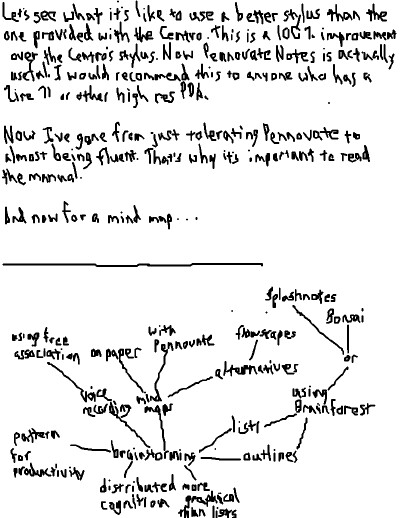 Let's see what it's like to use a better stylus than the
one provided with the Centro. This is a 100% improvement
over the Centro's stylus. Now Pennovate Notes is actually
useful. I would recommend this to anyone who has a
Zire 71 or other high res PDA.
Now I've gone from just tolerating Pennovate to
almost being fluent. That's why it's important to read
the manual.
And now for a mind map...
Splashnotes
Bonsai
using free
association
on paper
with
Pennovate
flowscapes
or
alternatives
voice
recording
mind
maps
using
Brainforest
lists
pattern
for
productivity
brainstorming
outlines
distributed
cognition
more
graphical
than lists